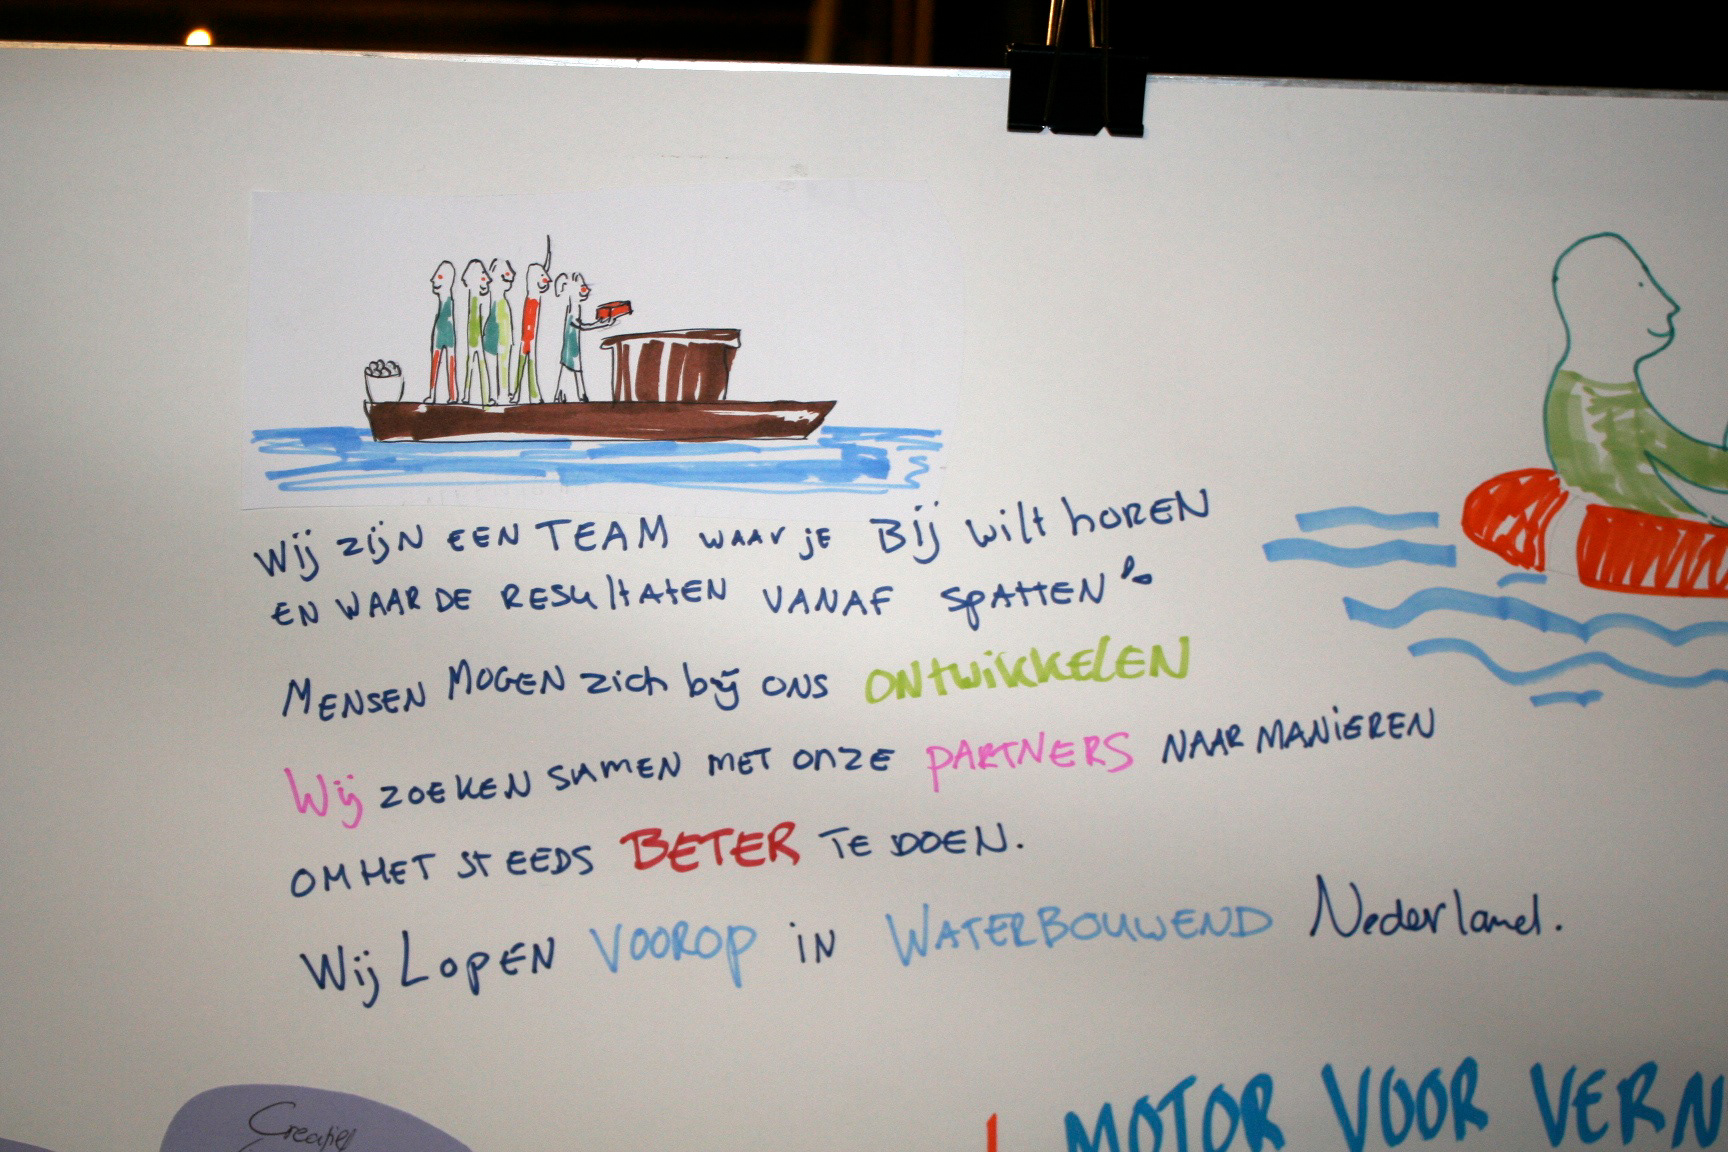 Wij zijN EEN TEAM waar je Bij wilt hOREN
EN WAAR DE RESUltAtEN VANAF SPAttEN
MENSEN MOGEN zich bij ONS ONtwikkELEN
Wij ZOEKEN SAMEN MET ONZE PARTNERS NAAR MANiEREN
OM HET STEEDS BETER TE DOEN.
Wij LOPEN VOOROP iN WATERBOUWEND Nederland.
MOTOR VOOR VERN
Creatief